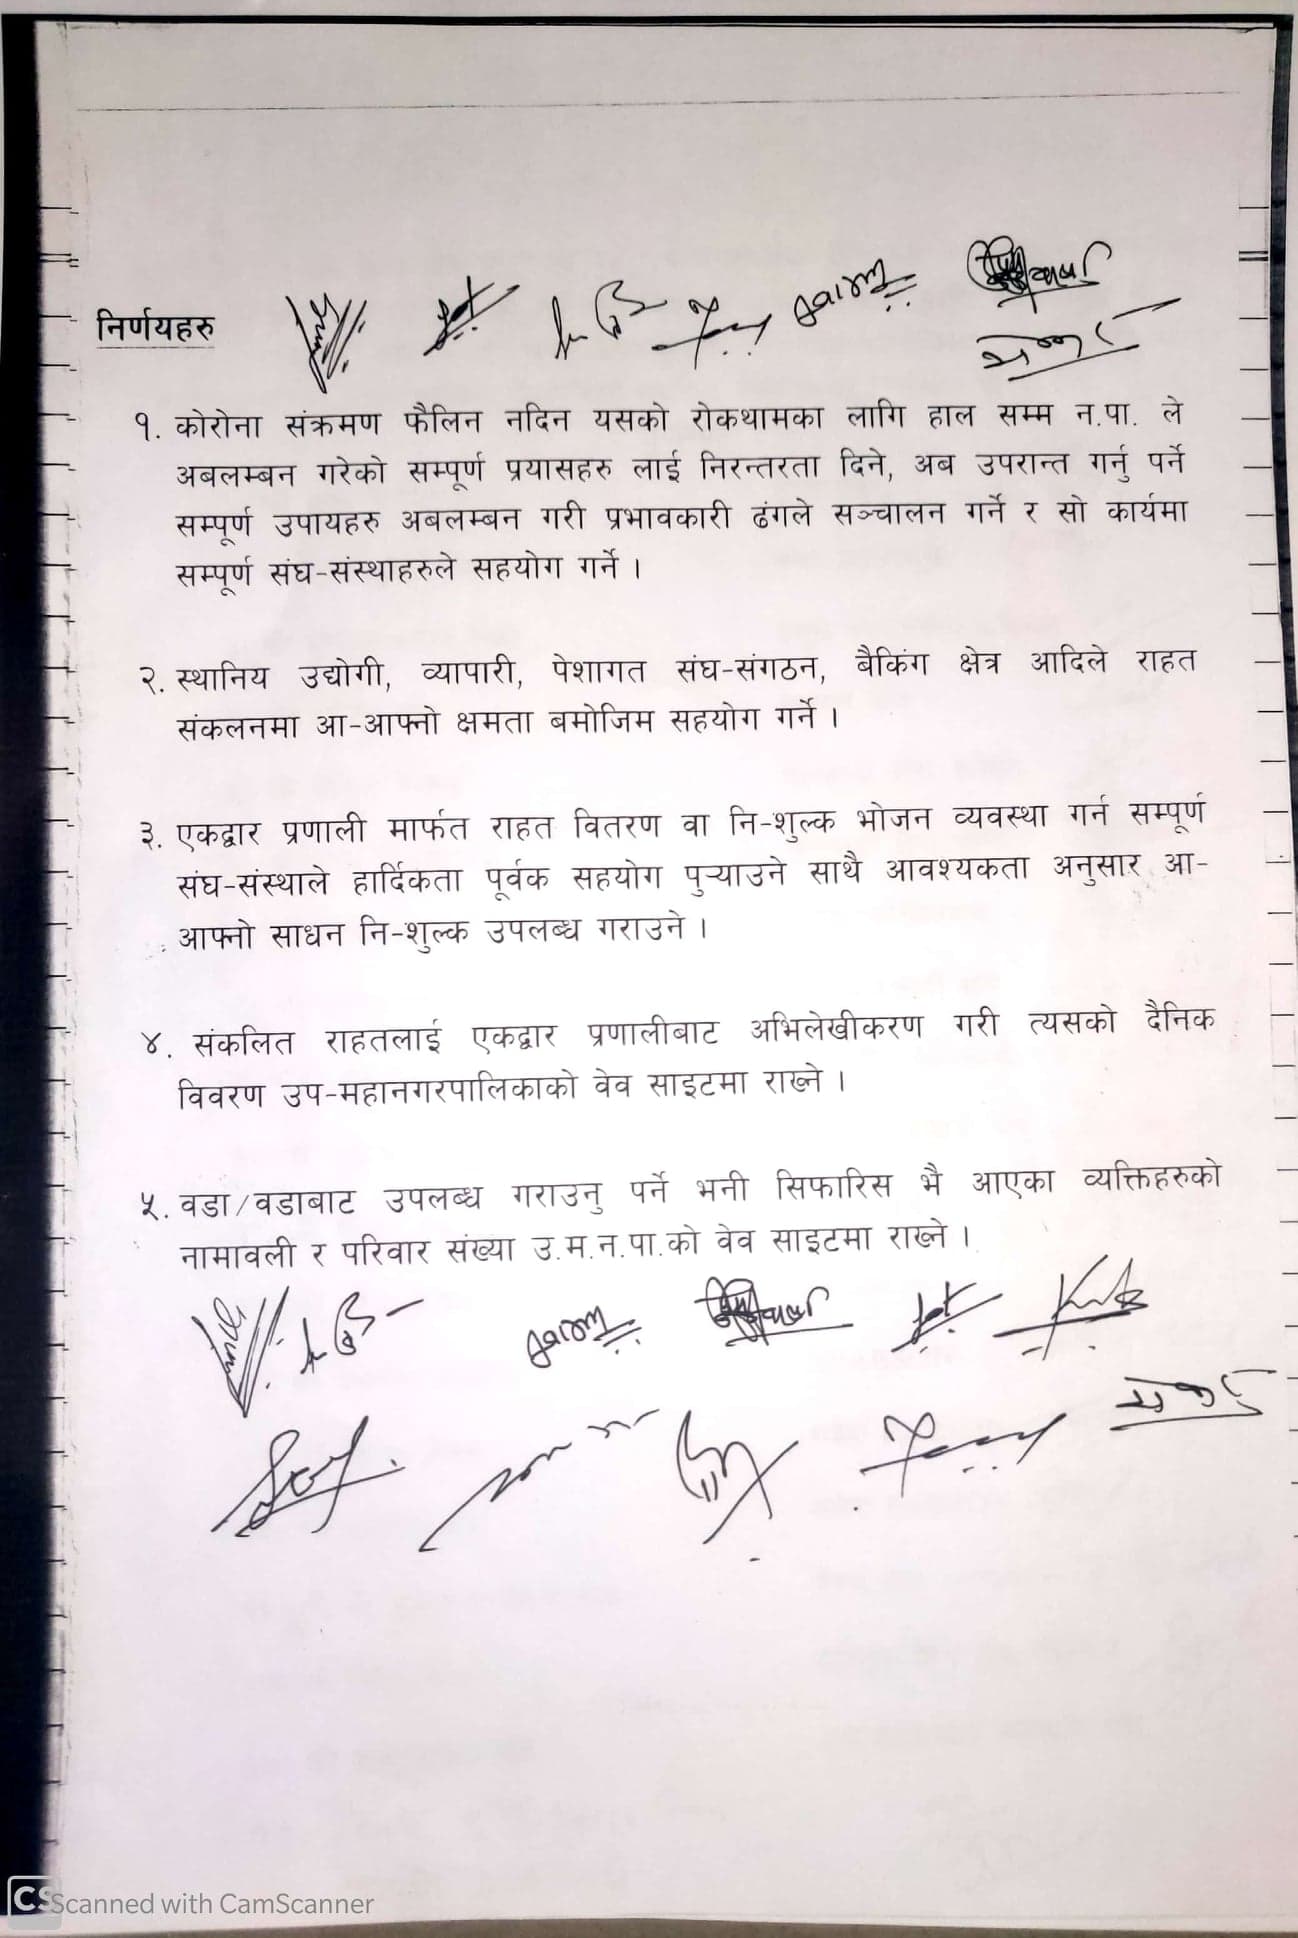 निर्णयहरु
१. कोरोना संक्रमण फैलिन नदिन यसको रोकथामका लागि हाल सम्म न.पा. ले
अबलम्बन गरेको सम्पूर्ण प्रयासहरु लाई निरन्तरता दिने, अब उपरान्त गर्नु पर्ने
सम्पूर्ण उपायहरु अबलम्बन गरी प्रभावकारी ढंगले सञ्चालन गर्ने र सो कार्यमा
सम्पूर्ण संघ-संस्थाहरुले सहयोग गर्ने ।
२. स्थानिय उद्योगी, व्यापारी, पेशागत संघ-संगठन, बैकिंग क्षेत्र आदिले राहत
संकलनमा आ-आफ्नो क्षमता बमोजिम सहयोग गर्ने ।
३. एकद्वार प्रणाली मार्फत राहत वितरण वा नि-शुल्क भोजन व्यवस्था गर्न सम्पूर्ण
संघ-संस्थाले हार्दिकता पूर्वक सहयोग पुर्‍याउने साथै आवश्यकता अनुसार आ-
आफ्नो साधन नि-शुल्क उपलब्ध गराउने ।
४. संकलित राहतलाई एकद्वार प्रणालीबाट अभिलेखीकरण गरी त्यसको दैनिक
विवरण उप-महानगरपालिकाको वेव साइटमा राख्ने ।
५. वडा/वडाबाट उपलब्ध गराउनु पर्ने भनी सिफारिस भै आएका व्यक्तिहरुको
नामावली र परिवार संख्या उ.म.न.पा.को वेव साइटमा राख्ने ।
CS Scanned with CamScanner